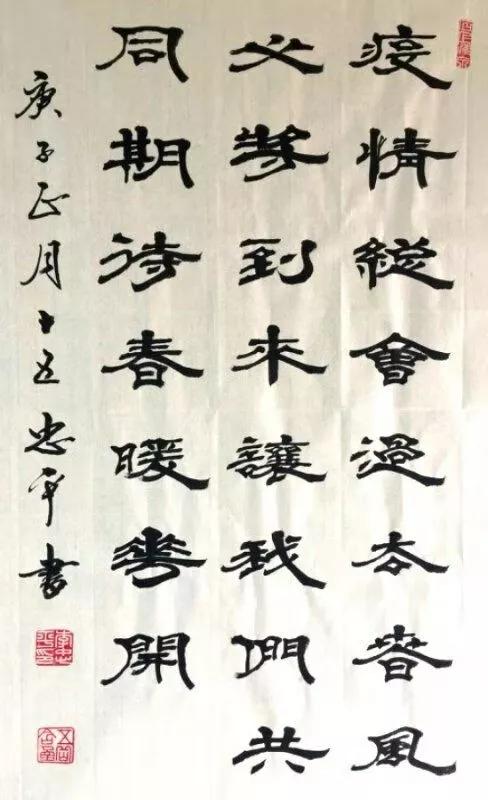 疫情總會過去春風
必將到來讓我們共
同期待春暖華開
庚子正月十五忠平書